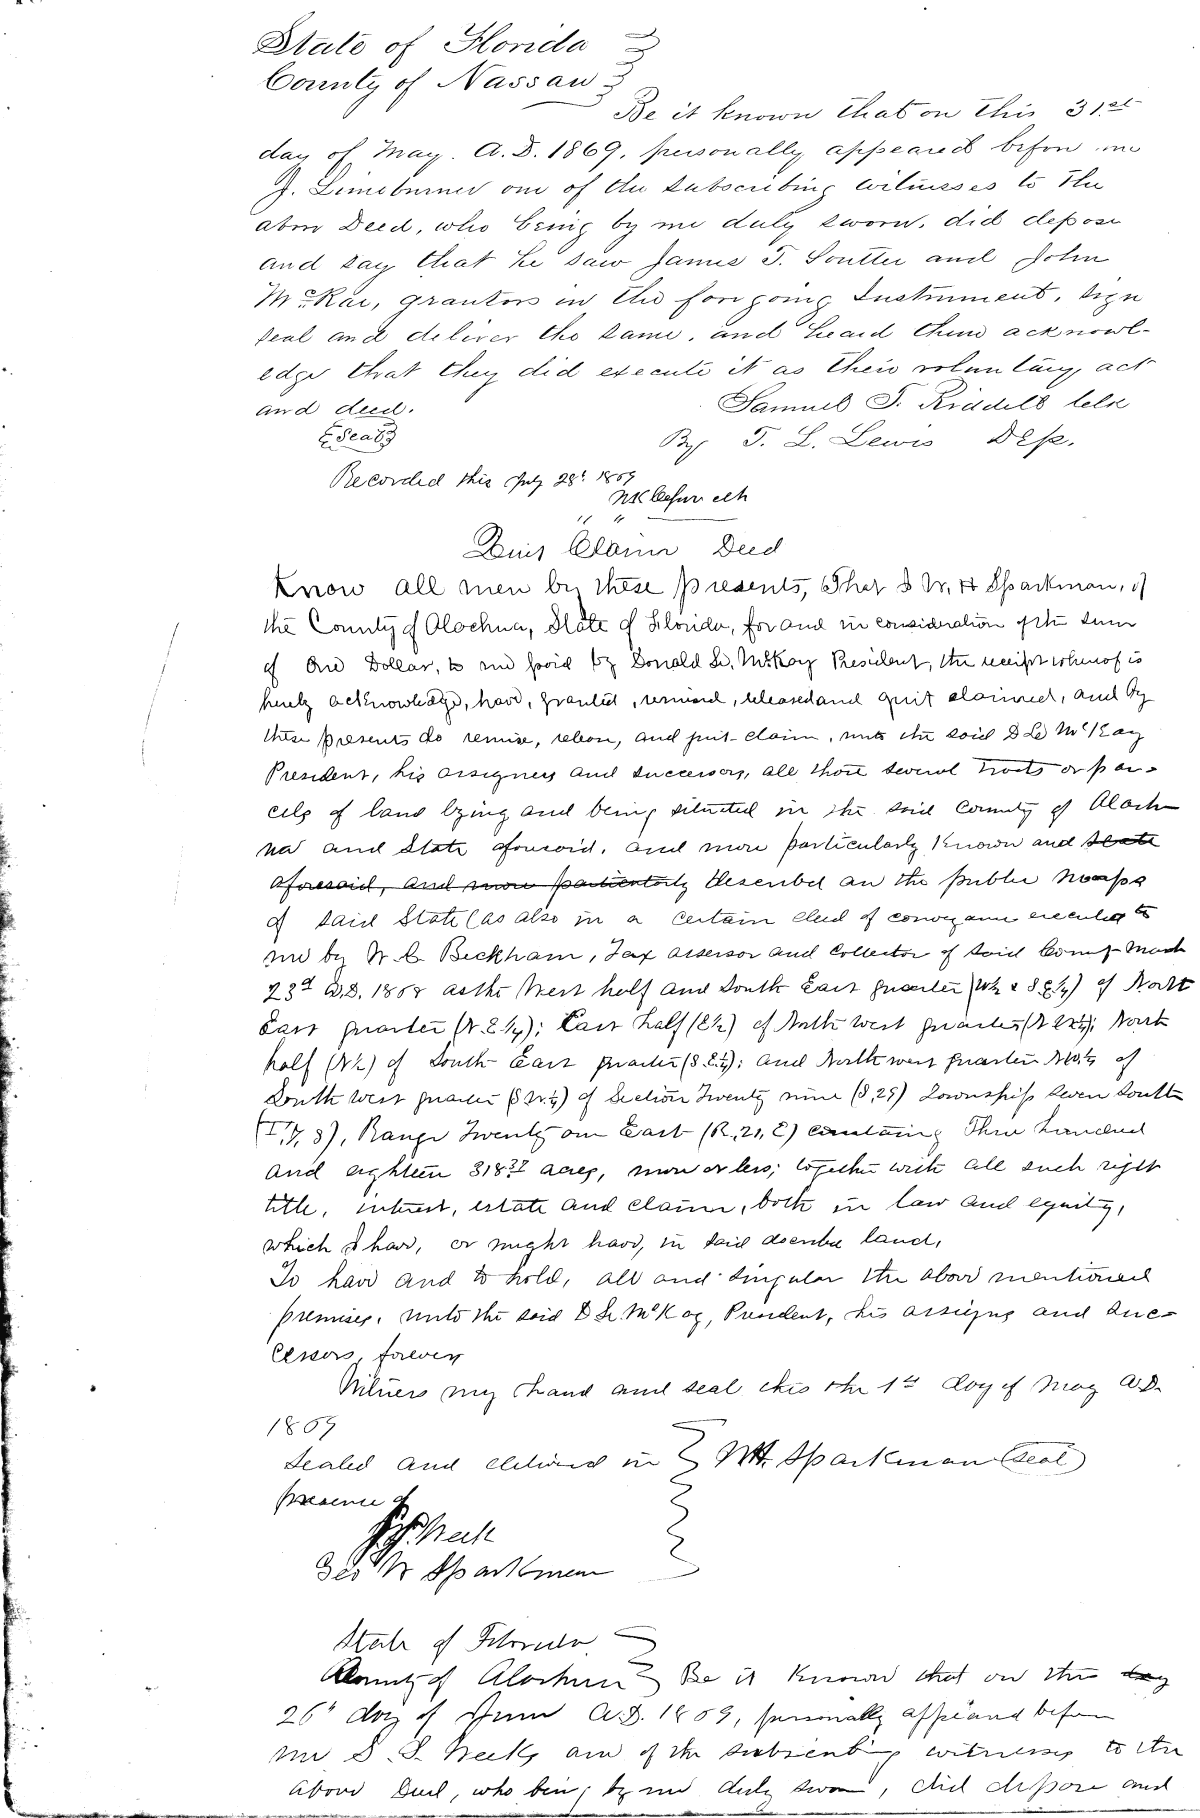 State of Florida
County of Nassau
Be it known that on this 31st
day of May. A.D. 1869, personally appeared before me
J. Limeburner one of the subscribing witnesses to the
above Deed, who being by me duly sworn, did depose
and say that he saw James T. Soutter and John
McRae, grantors in the foregoing Instrument, sign
seal and deliver the same, and heard them acknowl-
edge that they did execute it as their voluntary act
and deed. Samuel T. Riddell Clk
Seal By T. L. Lewis Dep.
Recorded this July 28t 1869
Quit Claim Deed
Know all men by these presents, That I W. H Sparkman, of
the County of Alachua, State of Florida, for and in consideration of the sum
of One Dollar, to me paid by Donald L. McKay President, the receipt whereof is
hereby acknowledge, have, granted, remised, released and quit claimed, and by
these presents do remise, release, and quit-claim, unto the said D L McKay
President, his assigns and successors, all those several tracts or par-
cels of land lying and being situated in the said County of Alach
ua and State aforesaid, and more particularly known and State
aforesaid, and more particularly described on the public maps
of said State (as also in a certain deed of conveyance executed to
me by W. C. Beckham, Tax assessor and Collector of said County March
23d A.D. 1868 as the West half and South East quarter (W½ & S.E.¼) of North
East quarter (N.E.¼); East half (E½) of North West quarter (N.W.¼); North
half (N½) of South East quarter (S.E.¼); and North west quarter N.W.¼ of
South west quarter (S.W.¼) of Section Twenty nine (S,29) Township seven South
(T,7,S), Range Twenty one East (R,21,E) containing Three hundred
and eighteen 318 acres, more or less; together with all such right
title, interest, estate and claim, both in law and equity,
which I have, or might have, in said described land,
To have and to hold, all and singular the above mentioned
premises, unto the said D L. McKay, President, his assigns and suc-
cessors, forever
Witness my hand and seal this the 1st day of May A.D.
1869
Sealed and delivered in W.H. Sparkman (Seal)
presence of
Geo W Sparkman
State of Florida
County of Alachua Be it known that on this day
26t day of June A.D. 1869, personally appeared before
me S. S. Weeks one of the subscribing witnesses to the
above Deed, who being by me duly sworn, did depose and